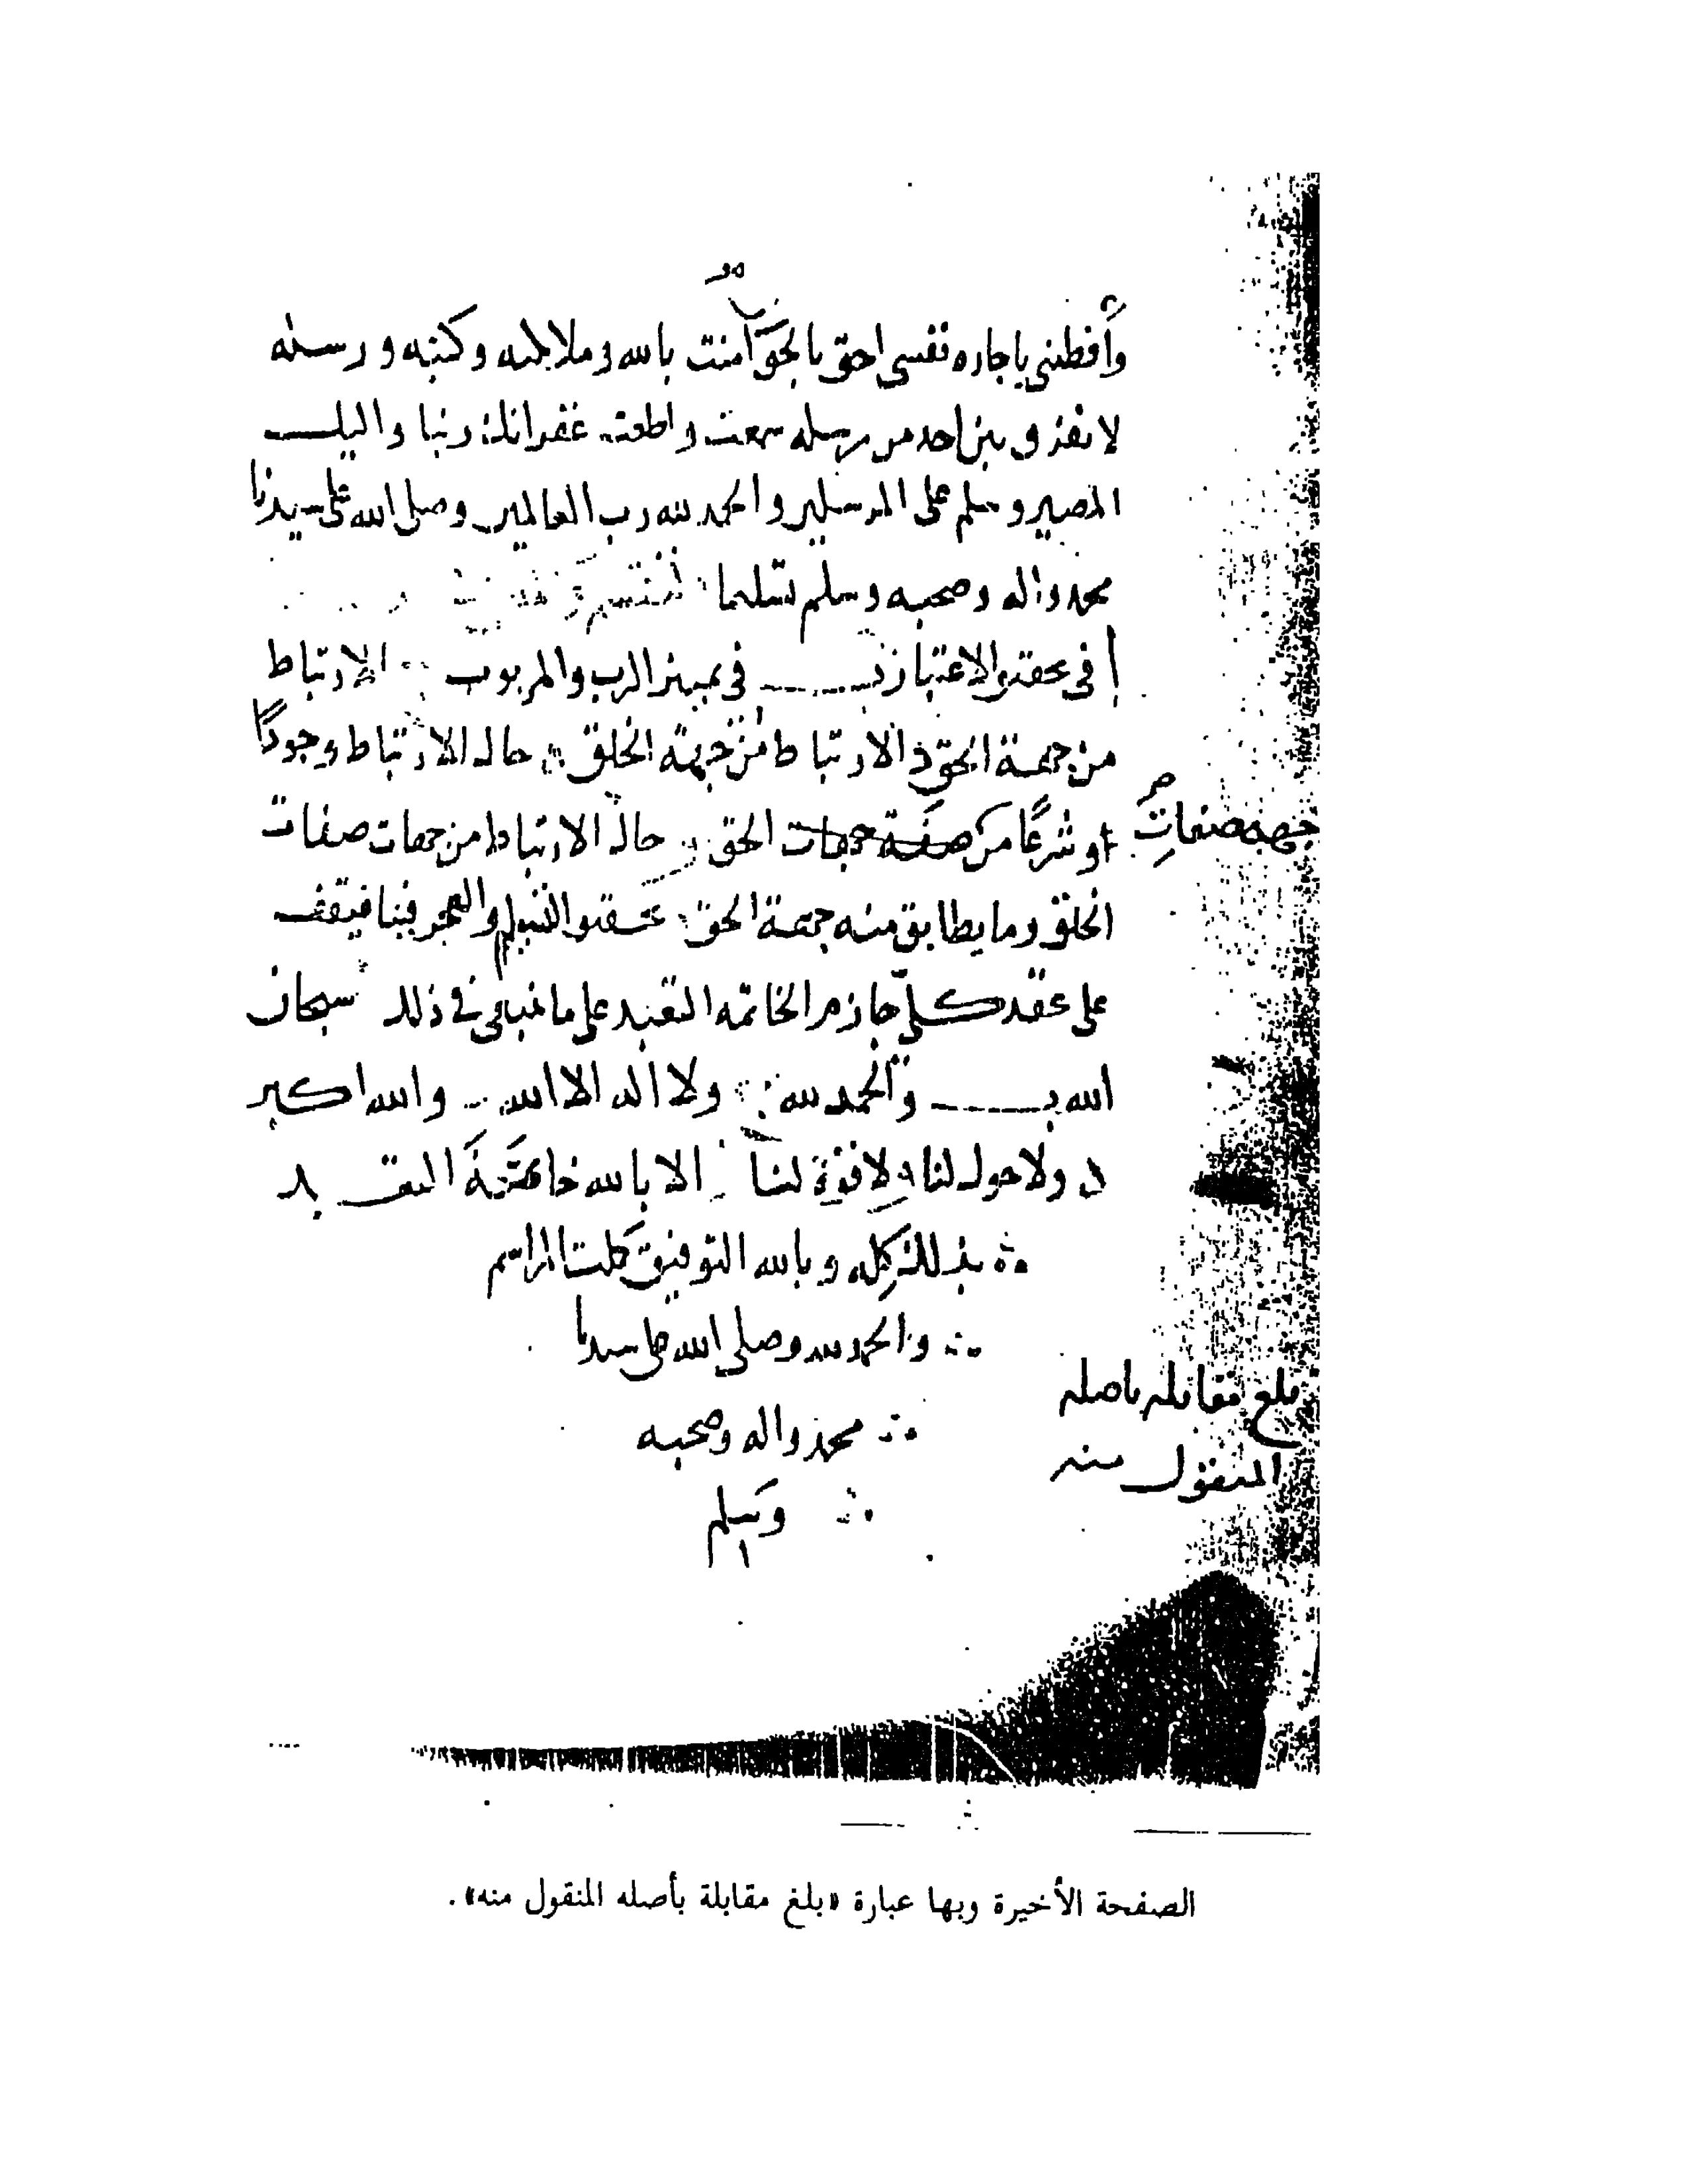 باجاره نفسى احق بالحق آمنت بالله وملائكته وكتبه ورسله
لا نفرق بين احد من رسله سمعت واطعت غفرانك ربنا واليك
المصير وسلم على المرسلين والحمد لله رب العالمين وصلى الله على سيدنا
محمد واله وصحبه وسلم تسليما
فى تمييز الرب والمربوب الارتباط
من جهة الحق الارتباط من جهة الخلق حالة الارتباط وجودًا
او شرعًا من صفة جهات الحق حالة الارتباط من جهات صفات
جهة صفات
الخلق وما يطابق منه جهة الحق والعجز فينا فيقف
على عقد كل جازم الخاتمه التقييد على ما ينبغى فى ذلك سبحان
الله والحمد لله ولا اله الا الله والله اكبر
ولا حول لنا ولا قوة لنا الا بالله خاتمة التقييد
بذلك كله وبالله التوفيق كملت المراسم
والحمد لله وصلى الله على سيدنا
محمد واله وصحبه
وسلم
بلغ مقابلة باصله
المنقول منه
الصفحة الأخيرة وبها عبارة «بلغ مقابلة بأصله المنقول منه».